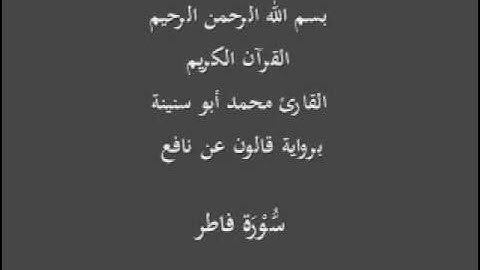 بسم الله الرحمن الرحيم
القرآن الكريم
القارئ محمد أبو سنينة
برواية قالون عن نافع
سُّوْرَة فاطر